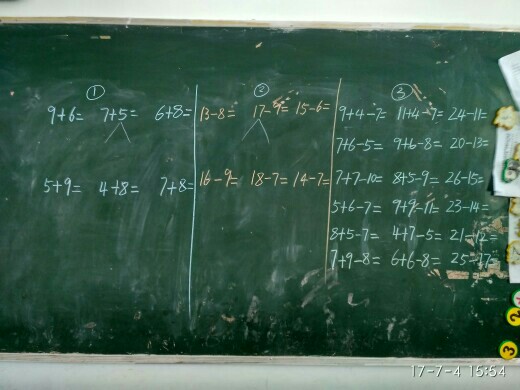 ① ② ③
9+6= 7+5= 6+8= 13-8= 17-9= 15-6= 9+4-7= 11+4-7= 24-11=
7+6-5= 9+6-8= 20-13=
5+9= 4+8= 7+8= 16-9= 18-7= 14-7= 7+7-10= 8+5-9= 26-15=
5+6-7= 9+9-11= 23-14=
8+5-7= 4+7-5= 21-12=
7+9-8= 6+6-8= 25-17=
2
3
17-7-4 15:54